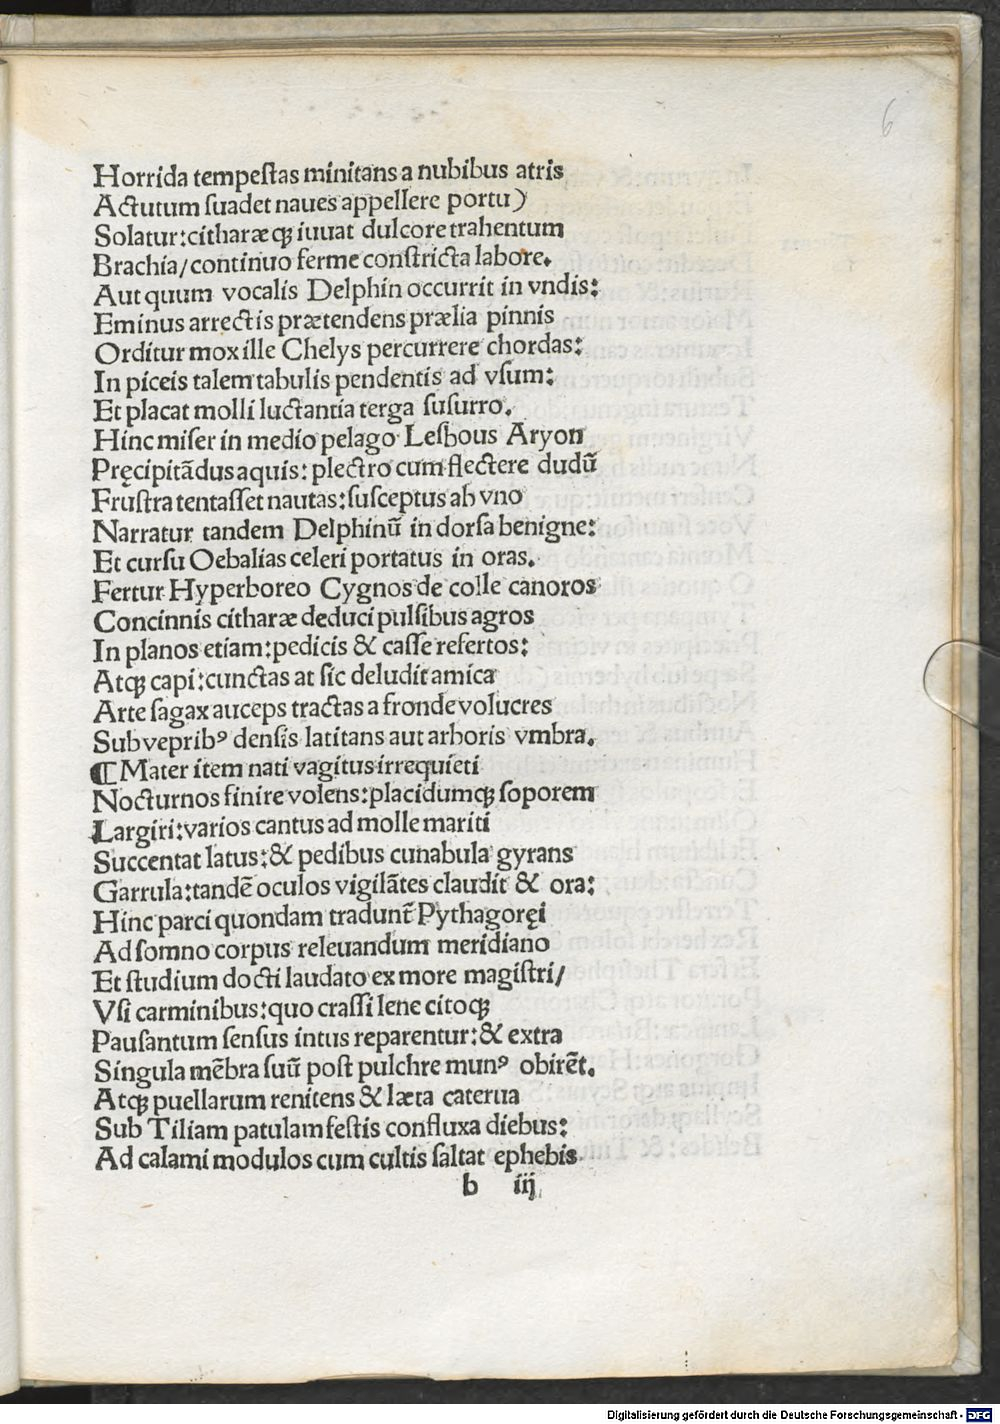 6
Horrida tempeſtas minitans a nubibus atris
Actutum ſuadet naues appellere portu)
Solatur:citharæq̃ iuuat dulcore trahentum
Brachia/continuo ferme conſtricta labore.
Aut quum vocalis Delphin occurrit in vndis:
Eminus arrectis prætendens prælia pinnis
Orditur mox ille Chelys percurrere chordas:
In piceis talem tabulis pendentis ad vſum:
Et placat molli luctantia terga ſuſurro.
Hinc miſer in medio pelago Leſbous Aryon
Pręcipitādus aquis: plectro cum flectere dudū
Fruſtra tentaſſet nautas:ſuſceptus ab vno
Narratur tandem Delphinū in dorſa benigne:
Et curſu Oebalias celeri portatus in oras.
Fertur Hyperboreo Cygnos de colle canoros
Concinnis citharæ deduci pulſibus agros
In planos etiam:pedicis & caſſe refertos:
Atq̃ capi:cunctas at ſic deludit amica
Arte ſagax auceps tractas a fronde volucres
Sub veprib⁹ denſis latitans aut arboris vmbra.
¶ Mater item nati vagitus irrequieti
Nocturnos finire volens:placidumq̃ ſoporem
Largiri:varios cantus ad molle mariti
Succentat latus:& pedibus cunabula gyrans
Garrula:tandē oculos vigilātes claudit & ora:
Hinc parci quondam tradunt̃ Pythagoręi
Ad ſomno corpus releuandum meridiano
Et ſtudium docti laudato ex more magiſtri/
Vſi carminibus:quo craſſi lene citoq̃
Pauſantum ſenſus intus reparentur:& extra
Singula mēbra ſuū poſt pulchre mun⁹ obirēt.
Atq̃ puellarum renitens & læta caterua
Sub Tiliam patulam feſtis confluxa diebus:
Ad calami modulos cum cultis ſaltat ephebis
b iij
Digitalisierung gefördert durch die Deutsche Forschungsgemeinschaft - DFG